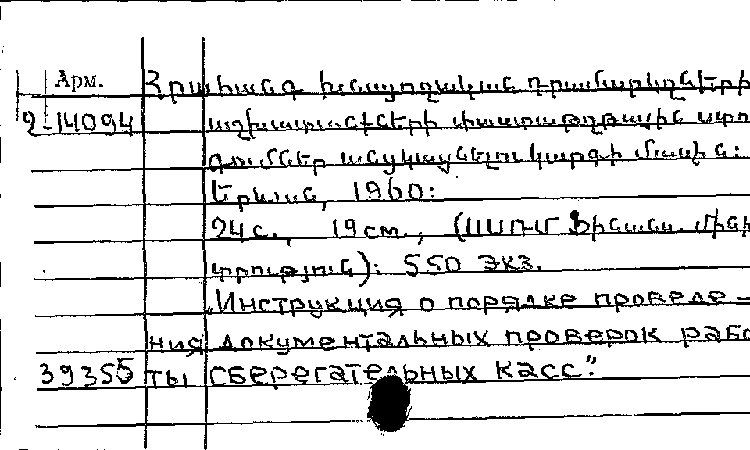 Арм. Հրահանգ խնայողական դրամարկղների
2-14094 աշխատանքների փաստաթղթային ստու
գումներ անցկացնելու կարգի մասին:
Երևան, 1960:
24 с., 19 см., (ՍՍՌՄ Ֆինանս. մինի
տրություն): 550 экз.
„Инструкция о порядке проведе-
ния документальных проверок рабо
39355 ты сберегательных касс".